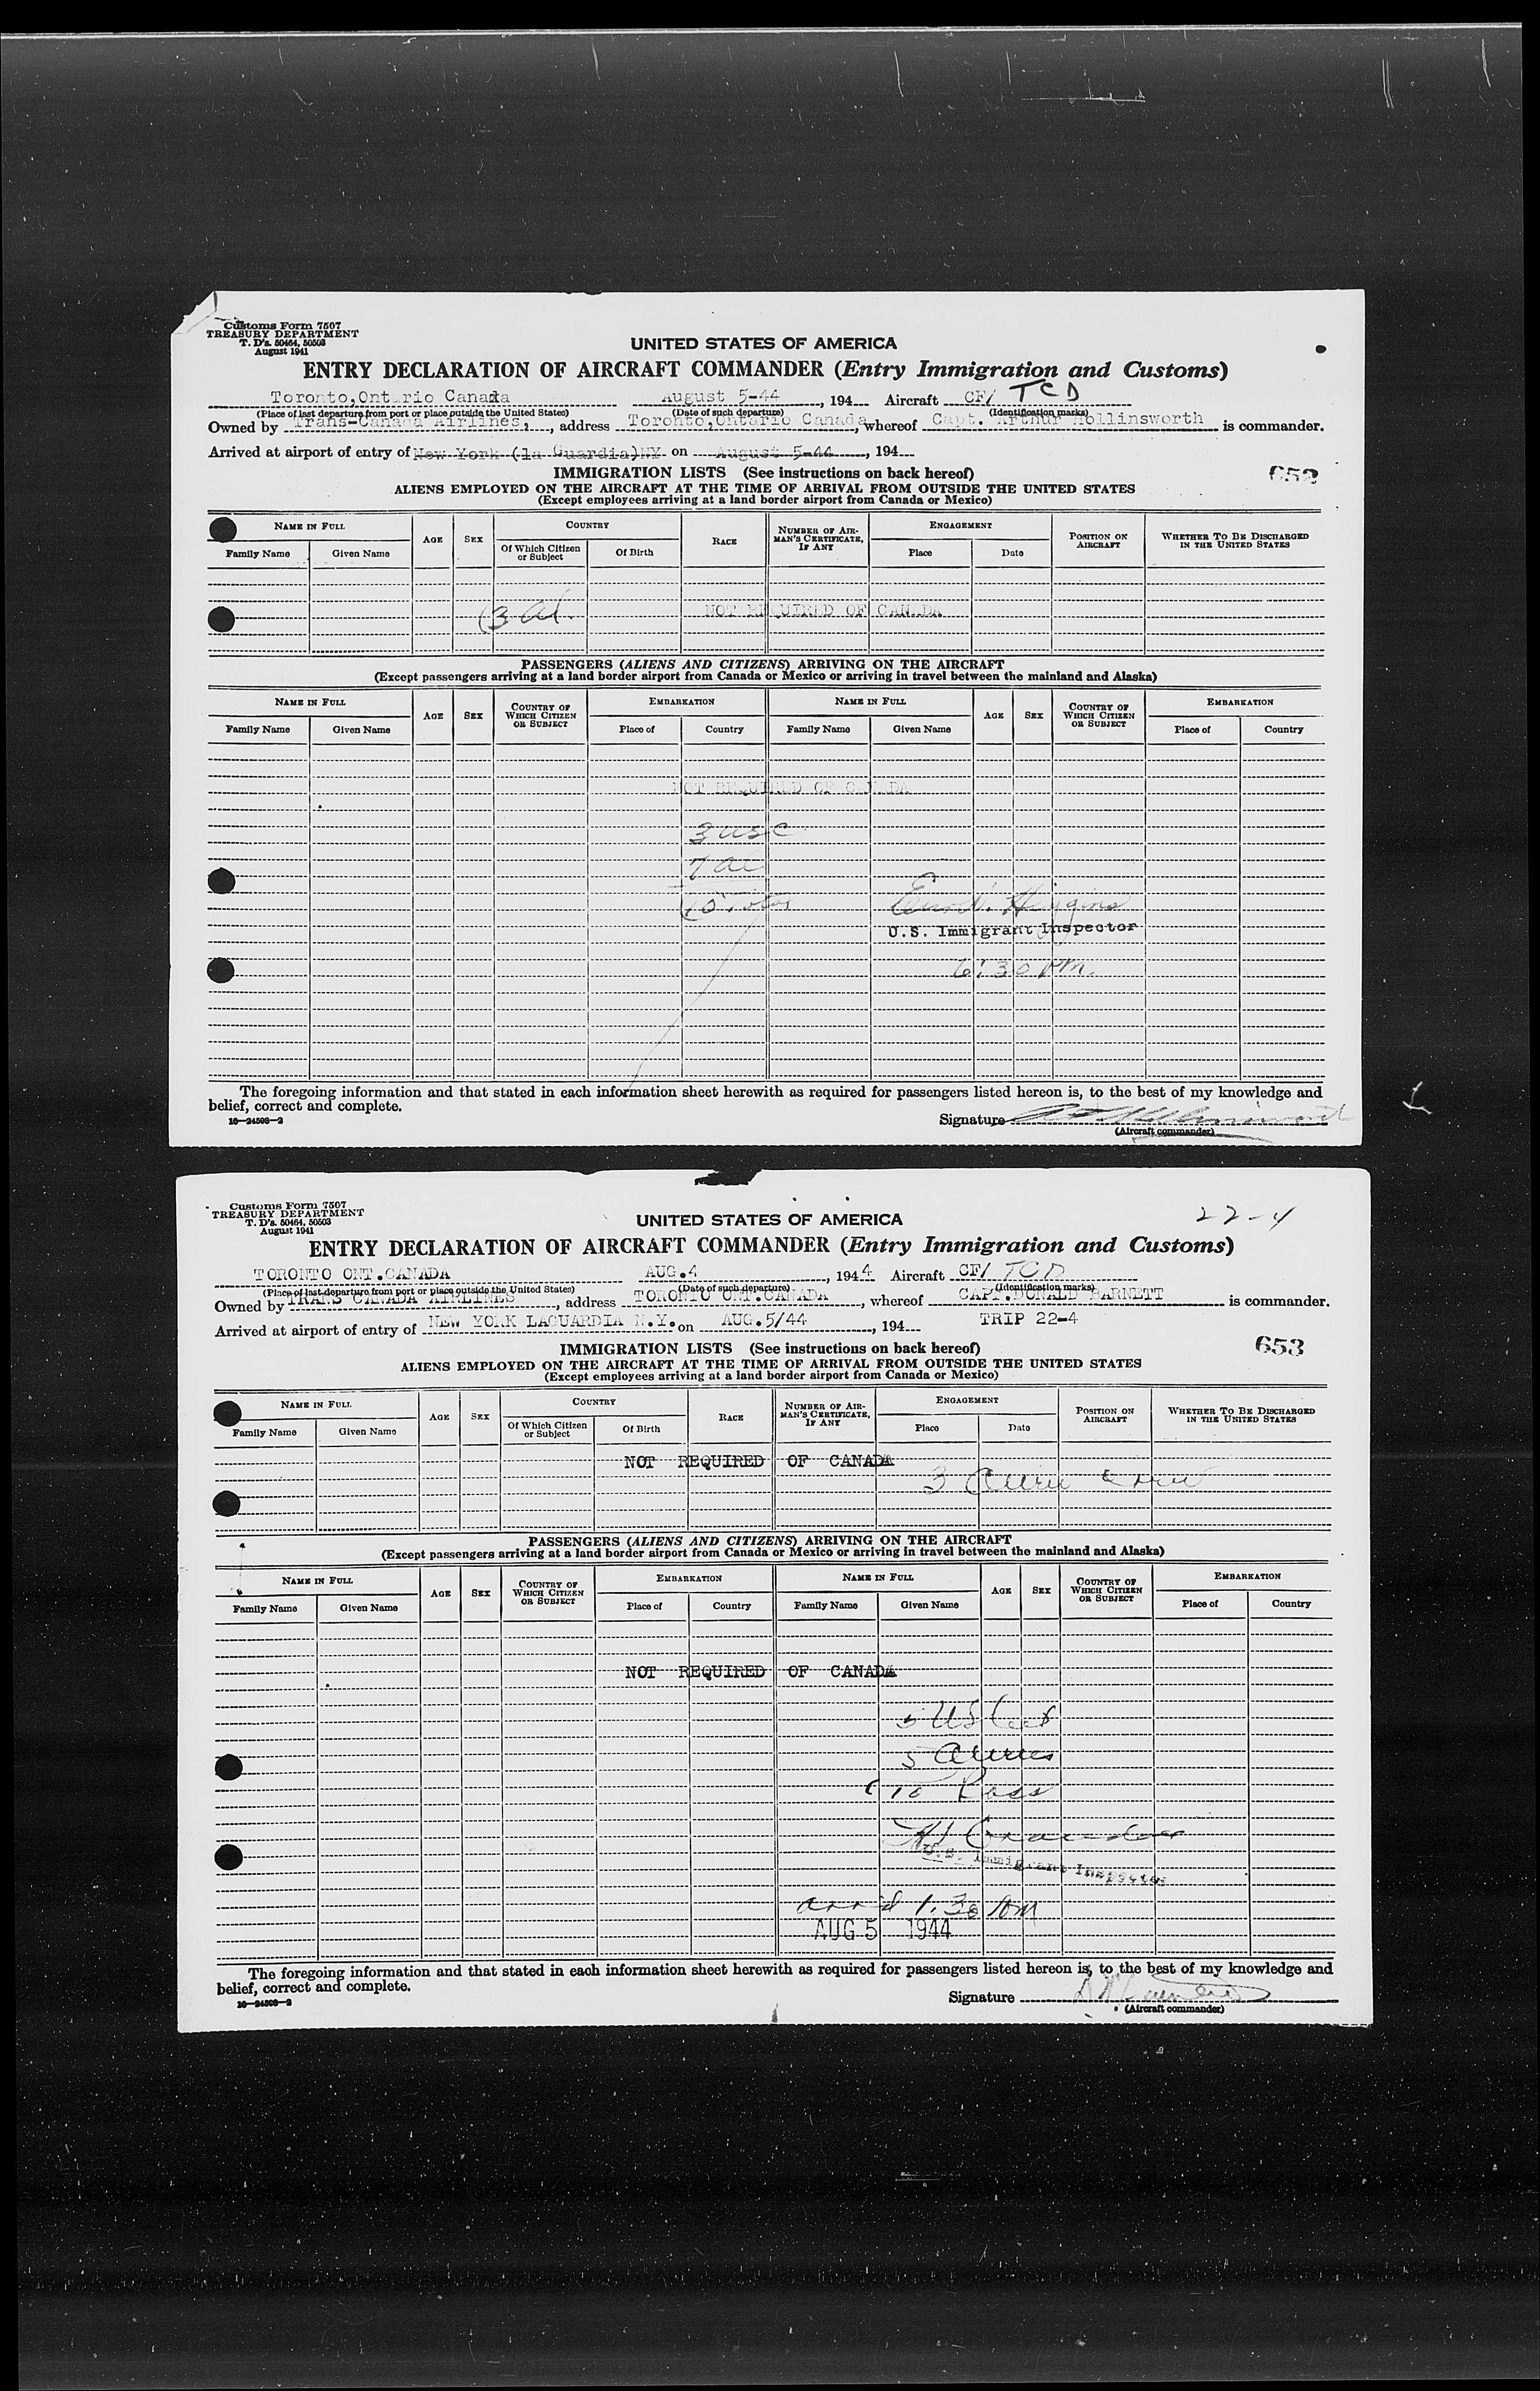 Customs Form 7507
TREASURY DEPARTMENT
T. D's. 50464, 50503
August 1941
UNITED STATES OF AMERICA
ENTRY DECLARATION OF AIRCRAFT COMMANDER (Entry Immigration and Customs)
Toronto,Ontario Canada August 5-44, 194 Aircraft CF/ TCD
(Place of last departure from port or place outside the United States) (Date of such departure) (Identification marks)
Owned by Trans-Canada Airlines, , address Toronto,Ontario Canada, whereof Capt. Arthur Hollinsworth is commander.
Arrived at airport of entry of New York (la Guardia)NY on August 5-44, 194
652
IMMIGRATION LISTS (See instructions on back hereof)
ALIENS EMPLOYED ON THE AIRCRAFT AT THE TIME OF ARRIVAL FROM OUTSIDE THE UNITED STATES
(Except employees arriving at a land border airport from Canada or Mexico)
NAME IN FULL AGE SEX COUNTRY RACE NUMBER OF AIRMAN'S CERTIFICATE, IF ANY ENGAGEMENT POSITION ON AIRCRAFT WHETHER TO BE DISCHARGED IN THE UNITED STATES
Family Name Given Name Of Which Citizen or Subject Of Birth Place Date
(3 al. NOT REQUIRED OF CANADA
PASSENGERS (ALIENS AND CITIZENS) ARRIVING ON THE AIRCRAFT
(Except passengers arriving at a land border airport from Canada or Mexico or arriving in travel between the mainland and Alaska)
NAME IN FULL AGE SEX COUNTRY OF WHICH CITIZEN OR SUBJECT EMBARKATION NAME IN FULL AGE SEX COUNTRY OF WHICH CITIZEN OR SUBJECT EMBARKATION
Family Name Given Name Place of Country Family Name Given Name Place of Country
NOT REQUIRED OF CANADA
3 usc
7 al
(10 Higgins
U.S. Immigrant Inspector
6:30 pm.
The foregoing information and that stated in each information sheet herewith as required for passengers listed hereon is, to the best of my knowledge and
belief, correct and complete.
16—24508—2
Signature
(Aircraft commander)
Customs Form 7507
TREASURY DEPARTMENT
T. D's. 50464, 50503
August 1941
UNITED STATES OF AMERICA
22-4
ENTRY DECLARATION OF AIRCRAFT COMMANDER (Entry Immigration and Customs)
TORONTO ONT.CANADA AUG.4, 1944 Aircraft CF/ TCD
(Place of last departure from port or place outside the United States) (Date of such departure) (Identification marks)
Owned by TRANS CANADA AIRLINES, address TORONTO ONT.CANADA, whereof CAPT.DONALD BARNETT is commander.
Arrived at airport of entry of NEW YORK LAGUARDIA N.Y. on AUG.5/44, 194 TRIP 22-4
653
IMMIGRATION LISTS (See instructions on back hereof)
ALIENS EMPLOYED ON THE AIRCRAFT AT THE TIME OF ARRIVAL FROM OUTSIDE THE UNITED STATES
(Except employees arriving at a land border airport from Canada or Mexico)
NAME IN FULL AGE SEX COUNTRY RACE NUMBER OF AIRMAN'S CERTIFICATE, IF ANY ENGAGEMENT POSITION ON AIRCRAFT WHETHER TO BE DISCHARGED IN THE UNITED STATES
Family Name Given Name Of Which Citizen or Subject Of Birth Place Date
NOT REQUIRED OF CANADA
3 alien crew
PASSENGERS (ALIENS AND CITIZENS) ARRIVING ON THE AIRCRAFT
(Except passengers arriving at a land border airport from Canada or Mexico or arriving in travel between the mainland and Alaska)
NAME IN FULL AGE SEX COUNTRY OF WHICH CITIZEN OR SUBJECT EMBARKATION NAME IN FULL AGE SEX COUNTRY OF WHICH CITIZEN OR SUBJECT EMBARKATION
Family Name Given Name Place of Country Family Name Given Name Place of Country
NOT REQUIRED OF CANADA
5 US
5 aliens
(10 Pass
U.S. Immigrant Inspector
arr'd 1.30 pm
AUG 5 1944
The foregoing information and that stated in each information sheet herewith as required for passengers listed hereon is, to the best of my knowledge and
belief, correct and complete.
16—24508—2
Signature
(Aircraft commander)